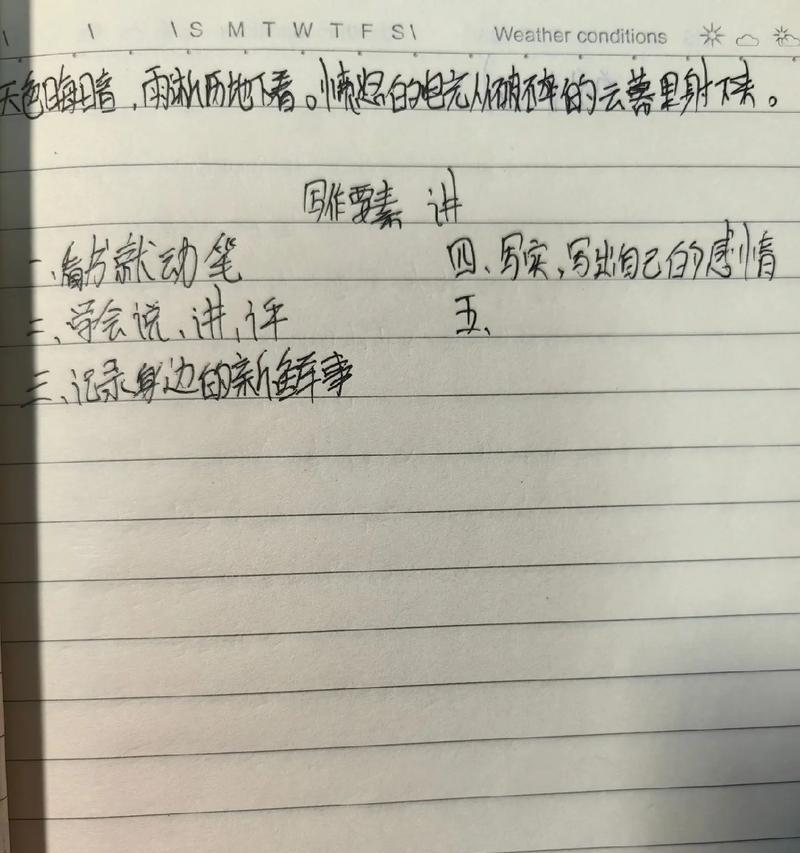 \ \ \ S M T W T F S\ Weather conditions
天色晦暗，雨淅历地下着。愤怒的电光从破碎的云幕里射下来。
写作要素 讲
一、看书就动笔 四、写实，写出自己的感情
二、学会说、讲、评 五、
三、记录身边的新鲜事